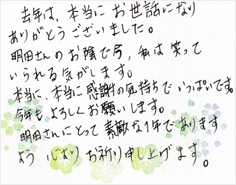 去年は、本当に お世話になり
ありがとうございました。
明田さんの お陰で今、私は 笑って
いられる気がします。
本当に、本当に感謝の気持ちで いっぱいです。
今年も よろしくお願いします。
明田さんにとって 素敵な1年であります
よう 心より お祈り申し上げます。